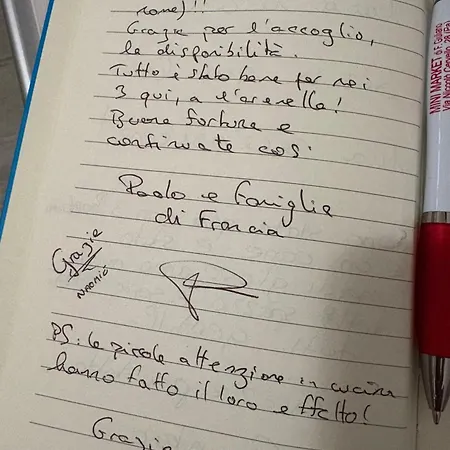 rome)!!
Grazie per l'accoglio,
la disponibilità.
Tutto è stato bene per noi
3 qui, a l'arenella!
Buona fortuna e
continuate così
Paolo e famiglia
di Francia
Grazie
NAOMIE
PS: le picole attenzione in cucina
hanno fatto il loro effetto!
Grazie
MINI MARKET di F. Giuliano
Via Niccolò